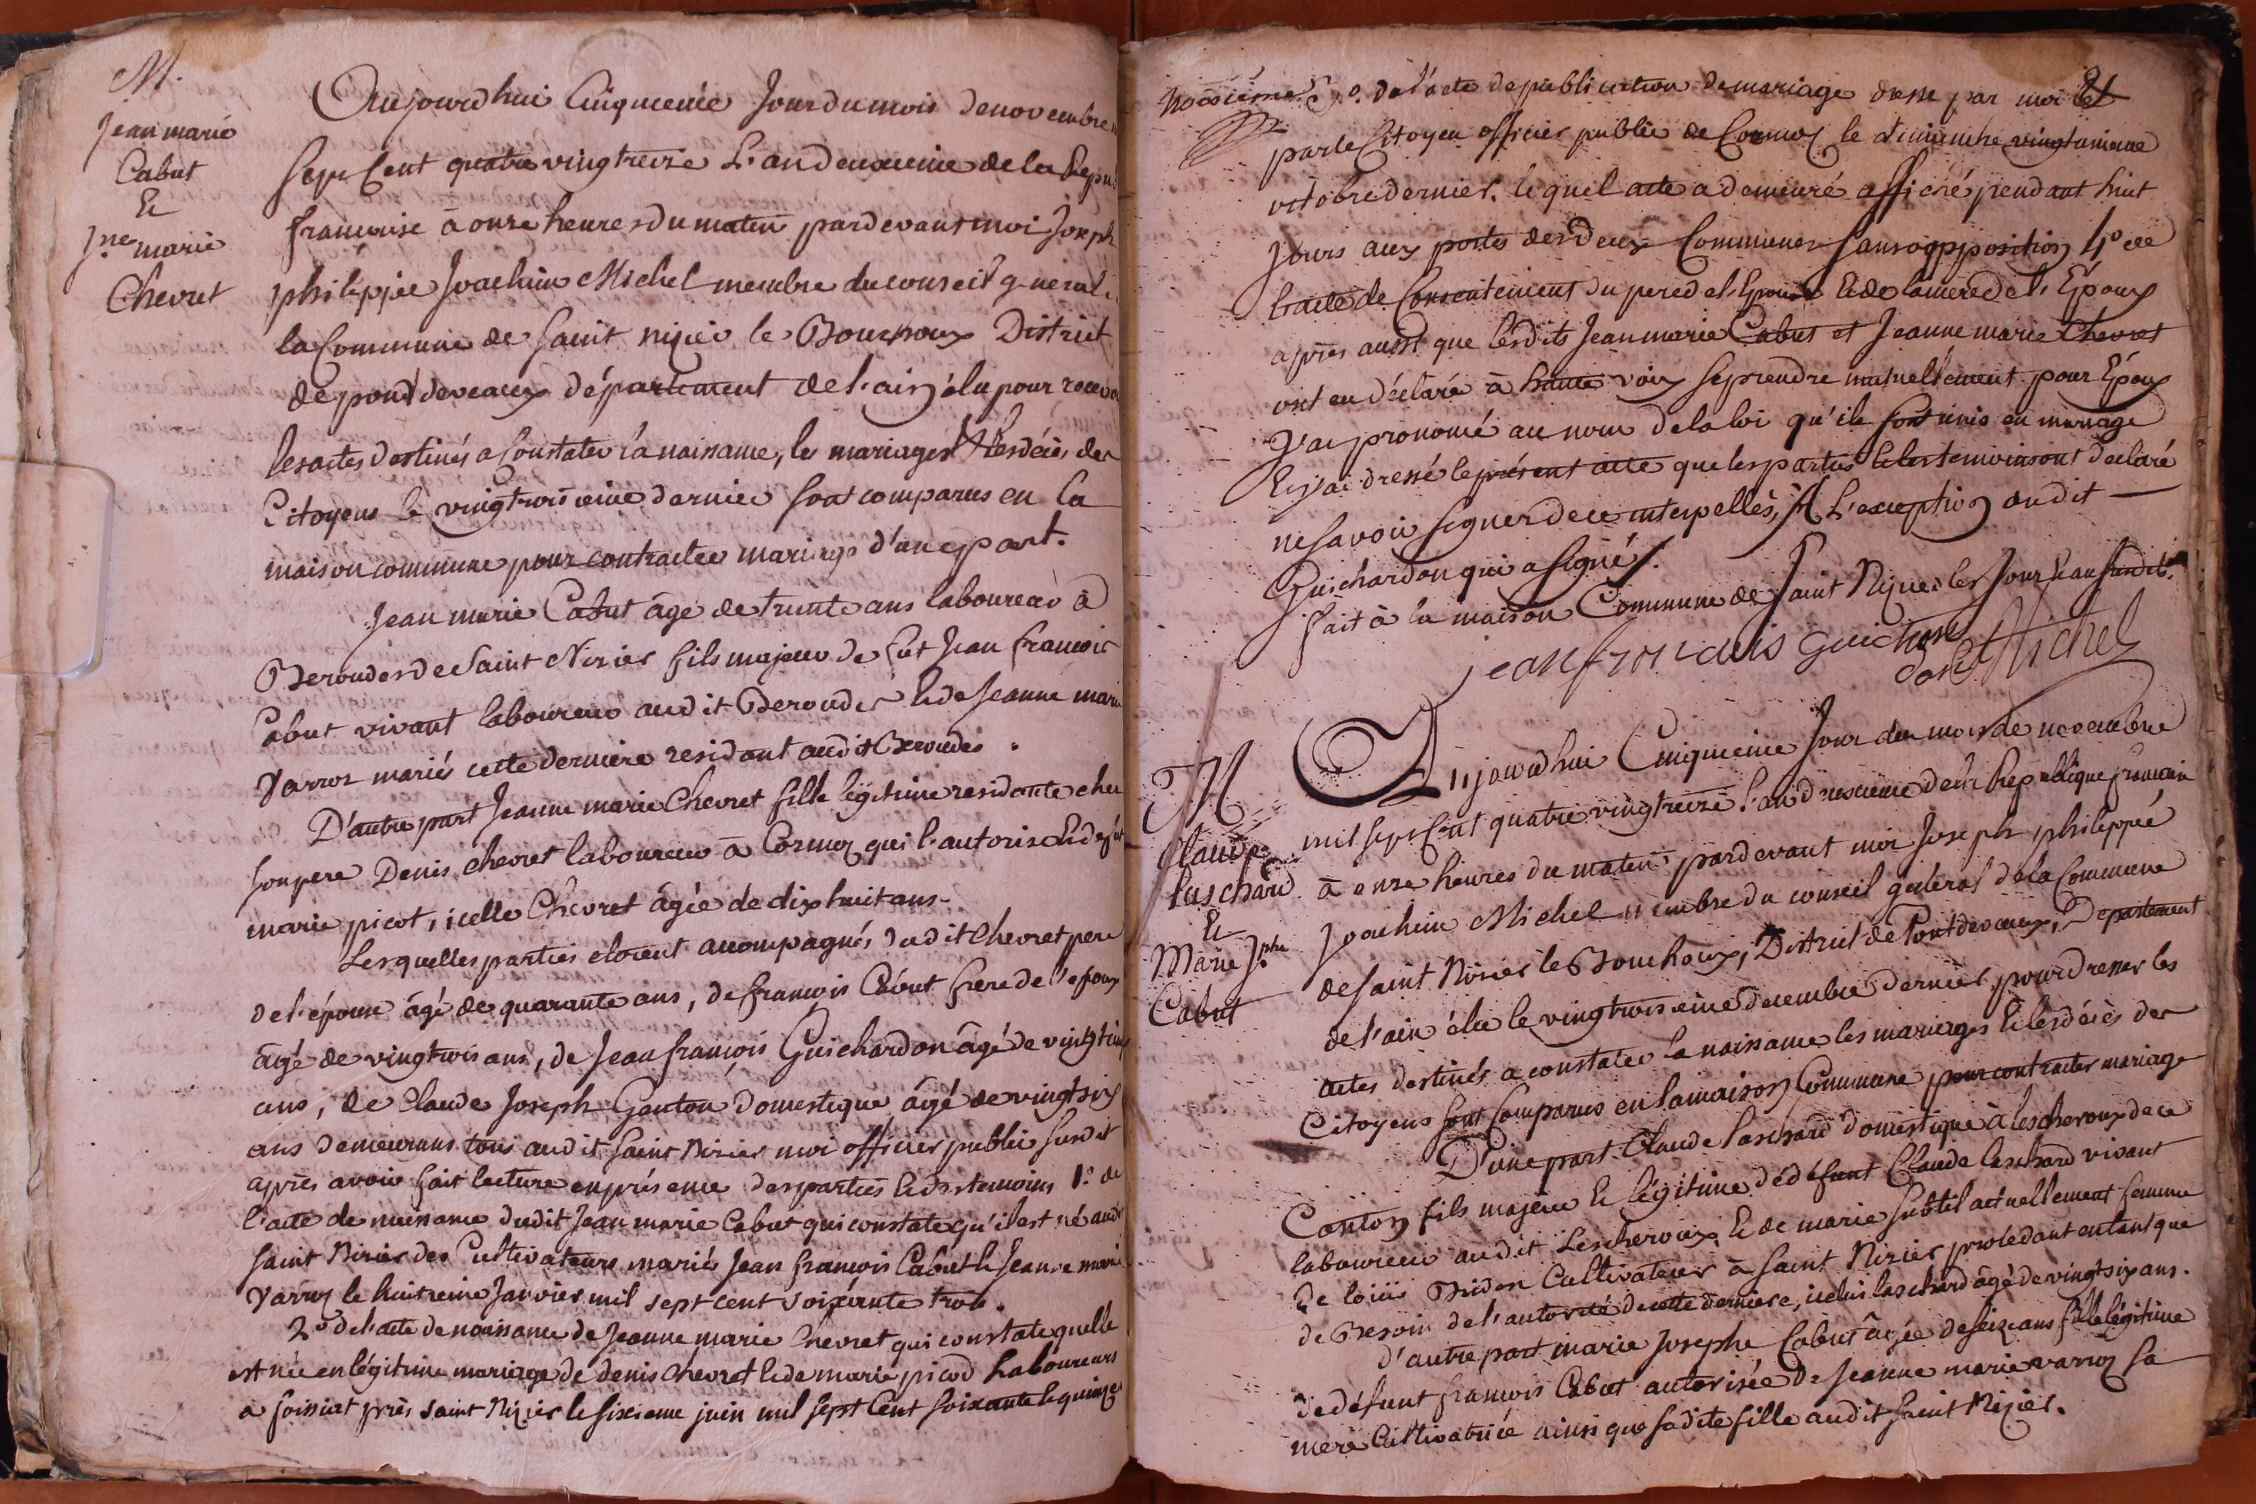 M.
Jean marie
Cabut
Et
Jne marie
Chevret
Aujourdhui Cinquieme Jour du mois de novembre
Sept Cent quatre vingt treize L'an deuxieme de la Repu
francoise à onze heures du matin pardevant moi Joseph
philippée Joachim Michel membre du conseil general
la Commune de Saint nizier le Bouchoux District
de pond deveaux département de l'ain élu pour recevo
les actes destinés a Constater la naissance, les mariages & les décès des
Citoyens le vingtroisieme dernier sont comparus en la
maison commune pour contracter mariage d'une part.
Jean marie Cabut âge de trente ans laboureur à
Beroudes de Saint Nizier fils majeur de fut Jean francois
Cabut vivant laboureur audit Beroudes & de Jeanne marie
Varroz mariés cette derniere residant audit Beroudes.
D'autre part Jeanne marie Chevret fille légitime residante chez
son pere Denis chevret laboureur à Cormoz qui l'autorise & defut
marie picot, icelle Chevret âgée de dix huit ans.
Lesquelles parties etoient accompagnés dudit Chevret pere
de l'épouse âgé de quarante ans, de francois Cabut frere de l'epoux
âgé de vingtrois ans, de Jean françois Guichardon âgé de vingt
ans, de Claude Joseph Ganton domestique âgé de vingt six
ans demeurans tous audit Saint Nizier moi officier public susdit
après avoir fait lecture en présence des parties & des temoins 1.° de
l'acte de naissance dudit Jean marie Cabut qui constate qu'il est né audit
Saint Nizier des Cultivateurs mariés Jean françois Cabut & Jeanne marie
Varroz le huitieme Janvier mil sept cent soixante trois.
2.° de l'acte de naissance de Jeanne marie Chevret qui constate quelle
est née en légitime mariage de denis Chevret & de marie picod Laboureurs
a soissiat près Saint Nizier le sixieme juin mil sept Cent soixante & quinze
3.° de l'acte de publication de mariage dressé par moi Et
par le Citoyen officier public de Cormoz le dimanche vingt
octobre dernier. lequel acte a demeuré affiché pendant huit
Jours aux portes des deux Communes sans opposition 4.° de
de Consentement du pere de l'Epouse & de la mere de l'Époux
après aussi que lesdits Jean marie Cabut et Jeanne marie Chevret
ont eu déclaré à haute voix se prendre mutuellement pour Époux
J'ai prononcé au nom de la loi qu'ils sont unis en mariage
& j'ai dressé le présent acte que les parties & les temoins ont déclaré
ne savoir signer de ce interpellés, A L'exception audit
Guichardon qui a signé.
fait à la maison Commune de Saint Nizier les Jour & an susdits.
jean francois guichar
don Michel
M
Claude
laschard
Et
Marie Jphe
Cabut
Aujourdhui Cinquieme Jour du mois de novembre
mil sept Cent quatre vingt treize l'an deuxieme de la Republique francaise
à onze heures du matin pardevant moi Joseph philippée
Joachim Michel membre du conseil général de la Commune
de Saint Nizier le Bouchoux, District de Pontdevaux, Département
de l'ain élu le vingtroisieme decembre dernier pour dresser les
actes destinés a constater la naissance les mariages & les décès des
Citoyens sont Comparus en la maison Commune pour contracter mariage
D'une part Claude laschard domestique à lescheroux de ce
Canton fils majeur & légitime de défunt Claude laschard vivant
laboureur audit Lescheroux & de marie subtil actuellement femme
de loüis Bridon Cultivateur à Saint Nizier procédant en tant que
de Besoin de l'autorité de cette derniere, icelui laschard âgé de vingt six ans.
d'autre part marie Josephe Cabut âgée de seize ans fille légitime
de défunt francois Cabut autorisée de Jeanne marie varroz sa
mere Cultivatrice ainsi que sadite fille audit Saint Nizier.